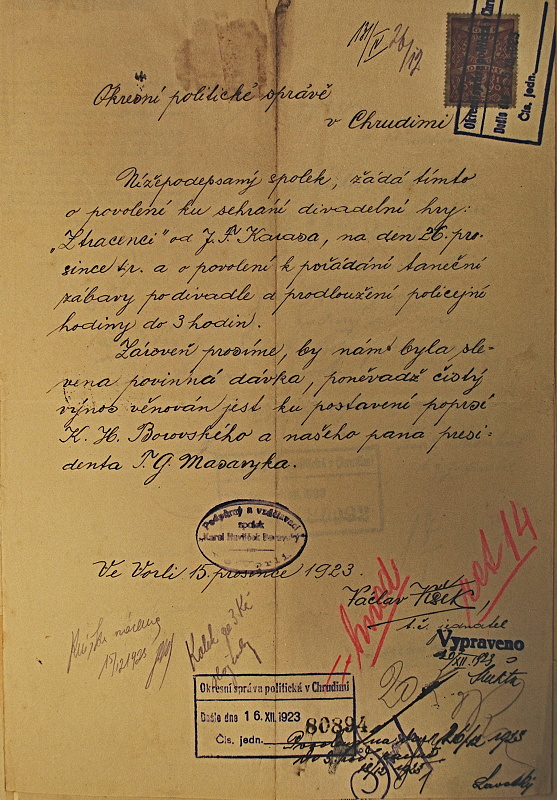 Okresní politické správě
v Chrudimi
Nížepodepsaný spolek, žádá tímto
o povolení ku sehrání divadelní hry:
"Ztracenci" od J. F. Karasa, na den 26. pro-
since t.r. a o povolení k pořádání taneční
zábavy po divadle a prodloužení policejní
hodiny do 3 hodin.
Zároveň prosíme, by nám byla sle-
vena povinná dávka, poněvadž čistý
výnos věnován jest ku postavení poprsí
K. H. Borovského a našeho pana presi-
denta T. G. Masaryka.
Podpůrný a vzdělávací
spolek
"Karel Havlíček Borovský"
Ve Vorli 15. prosince 1923.
Václav
t.č. jednatel
Vypraveno
Kolek za 3 Kč
15/12 1923
Okresní správa politická v Chrudimi
Došlo dne 16. XII. 1923
80894
Čís. jedn.
Okres
Došlo dne
Čís. jedn.